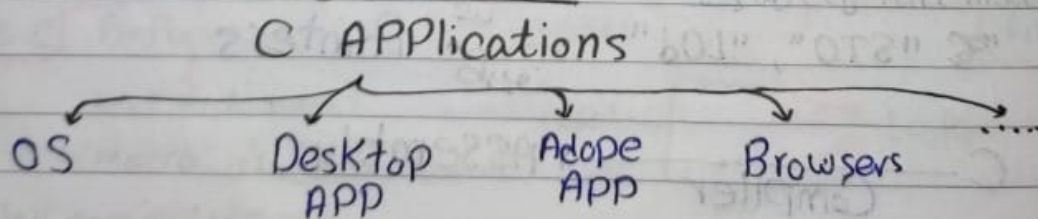 C APPlications
OS Desktop APP Adope APP Browsers .....